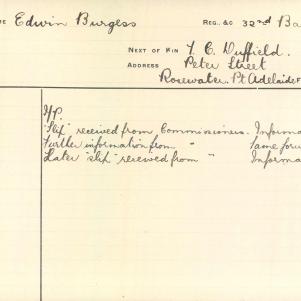 Edwin Burgess REG. &C 32nd Ba
NEXT OF KIN T. C. Duffield.
ADDRESS Peter Street
Rosewater. Pt Adelaide
"Slip" received from Commissioners. Informa
Further information from " Same forw
Later "slip" received from " Informa